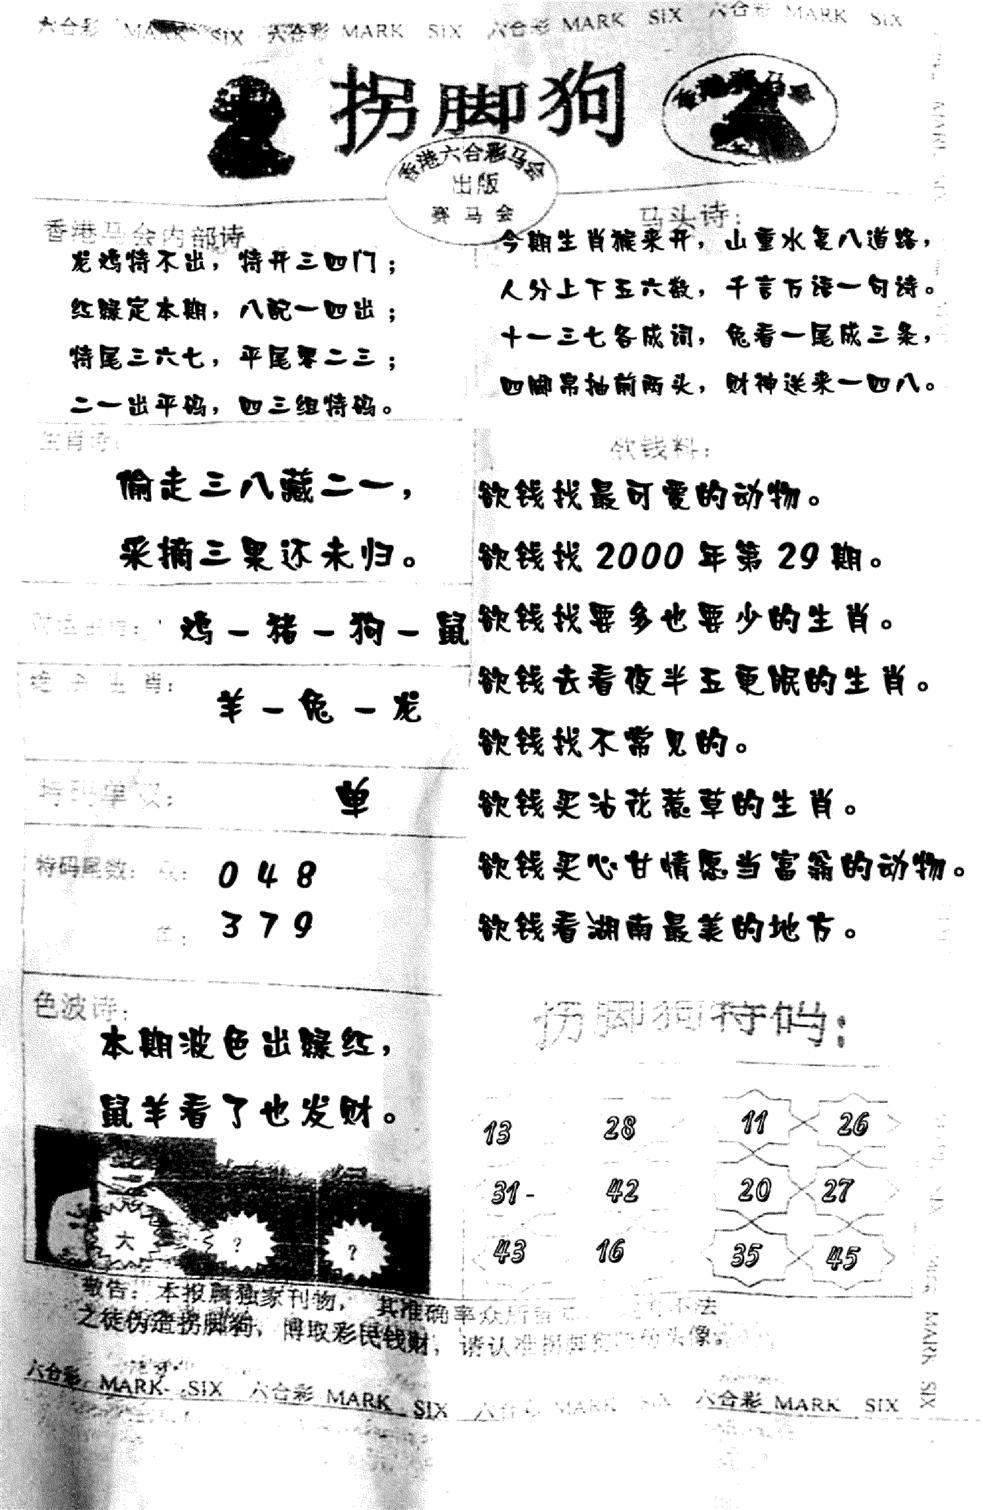 六合彩 MARK SIX 六合彩 MARK SIX 六合彩 MARK SIX 六合彩 MARK SIX
拐脚狗
香港赛马会
香港六合彩马会
出版
赛马会
香港马会内部诗
龙鸡特不出，特开三四门；
红绿定本期，八配一四出；
特尾三六七，平尾零二三；
二一出平码，四三组特码。
马头诗：
今期生肖猴来开，山重水复八道路，
人分上下五六数，千言万语一句诗。
十一三七各成词，兔看一尾成三条，
四脚帛抽前两头，财神送来一四八。
生肖诗：
偷走三八藏二一，
采摘三果还未归。
鸡－猪－狗－鼠
绝杀生肖：
羊－兔－龙
特码单双：
单
特码尾数：双：
0 4 8
单：
3 7 9
色波诗：
本期波色出绿红，
鼠羊看了也发财。
大 ？ ？
欲钱料：
欲钱找最可爱的动物。
欲钱找 2000 年第 29 期。
欲钱找要多也要少的生肖。
欲钱去看夜半五更眠的生肖。
欲钱找不常见的。
欲钱买沾花惹草的生肖。
欲钱买心甘情愿当富翁的动物。
欲钱看湖南最美的地方。
拐脚狗特码：
13 28 11 26
31- 42 20 27
43 16 35 45
敬告：本报属独家刊物，其准确率众所 不法
之徒伪造拐脚狗，博取彩民钱财，请认准拐脚狗 头像
六合彩 MARK SIX 六合彩 MARK SIX 六合彩 MARK SIX 六合彩 MARK SIX
MARK SIX